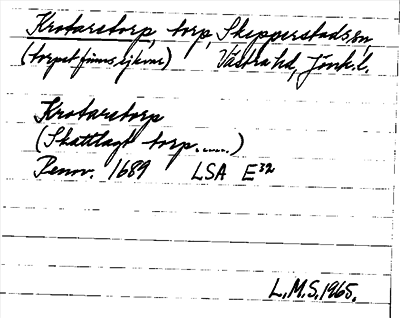 Krotaretorp, torp, Skepperstads sn,
(torpet finns ej kvar) Västra hd, Jönk.l.
Krotaretorp
(Skattlagt torp......)
Renov. 1689 LSA E³²
L.M.S. 1965.